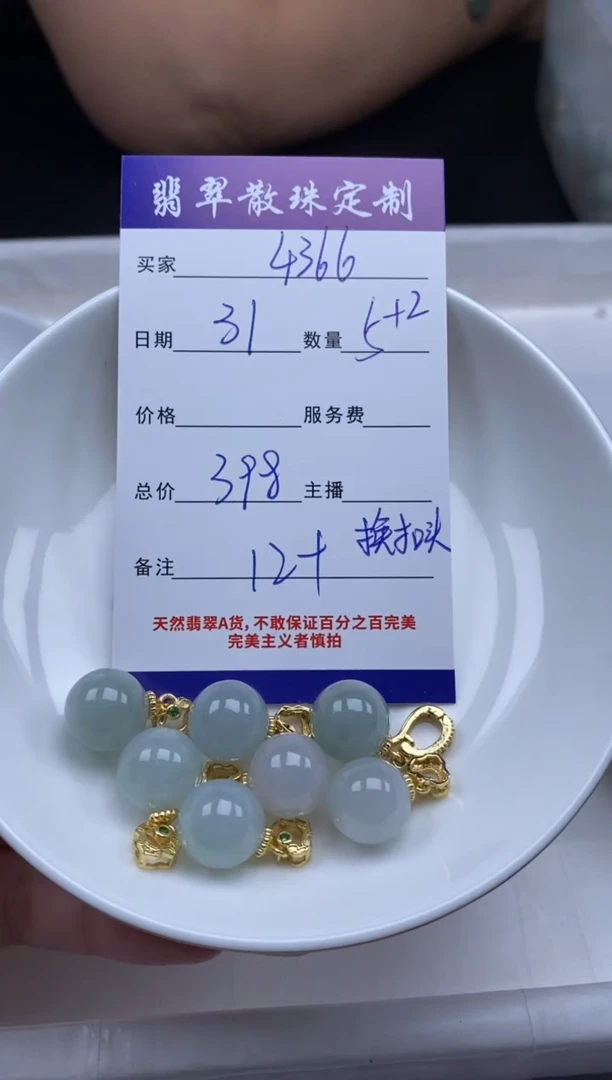 翡翠散珠定制
买家 4366
日期 31 数量 5+2
价格 服务费
总价 398 主播
换扣头
备注 12+
天然翡翠A货,不敢保证百分之百完美
完美主义者慎拍